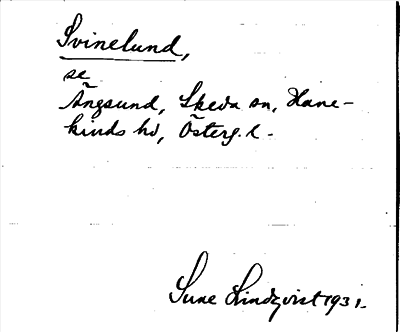 Svinelund,
se
Ängsund, Skeda sn, Hane-
kinds hd, Österg. l.
Sune Lindqvist 1931.